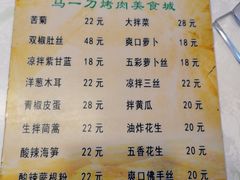 马一刀烤肉美食城
苦菊 22 元 大拌菜 28 元
双椒肚丝 48 元 爽口萝卜 18 元
凉拌紫甘蓝 18 元 五彩萝卜丝 18 元
洋葱木耳 22 元 凉拌三丝 22 元
青椒皮蛋 28 元 拌黄瓜 20 元
生拌茼蒿 22 元 油炸花生 20 元
酸辣海笋 22 元 五香花生 20 元
酸辣蕨根粉 22 元 爽口佛手丝 20 元